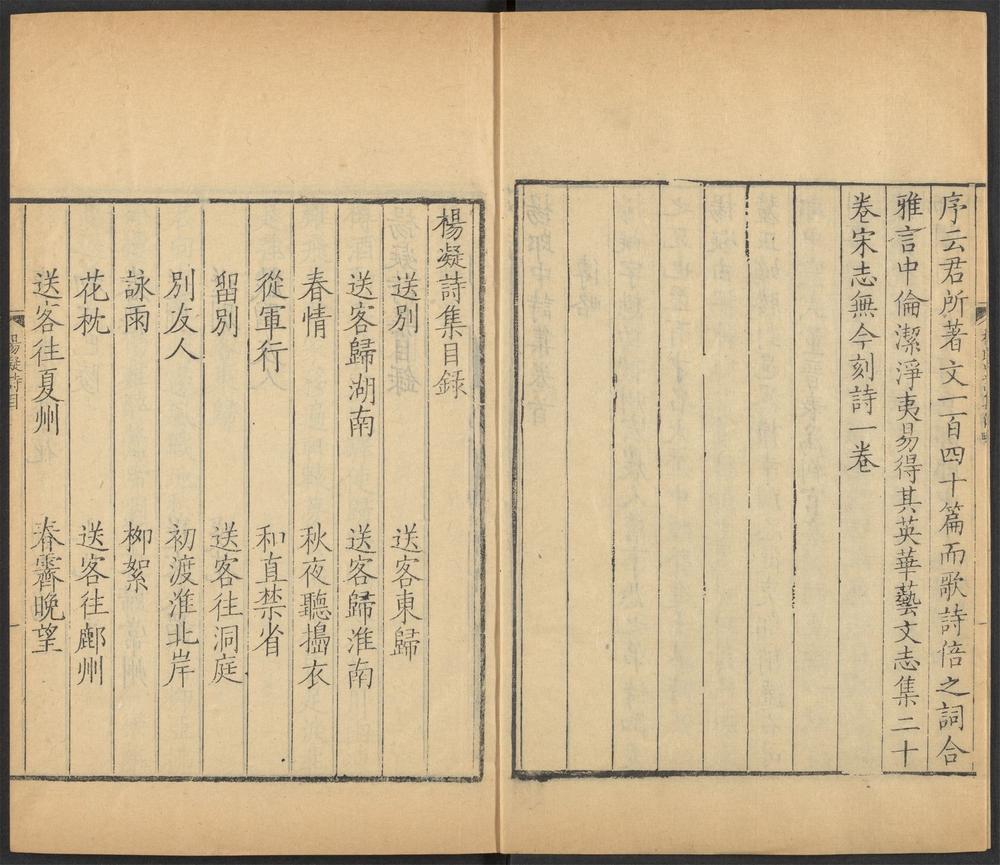 序云君所著文一百四十篇而歌詩倍之詞合
雅言中倫潔淨夷易得其英華藝文志集二十
卷宋志無今刻詩一卷
楊凝詩集目錄
送別　送客東歸
送客歸湖南　送客歸淮南
春情　秋夜聽擣衣
從軍行　和直禁省
留別　送客往洞庭
別友人　初渡淮北岸
詠雨　柳絮
花枕　送客往鄜州
送客往夏州　春霽晚望
楊凝詩目
一